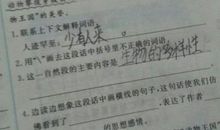 物王国"的美誉。
1.联系上下文解释词语。
人迹罕至:少有人来。
2.用"\"画去这段话中括号里不正确的词语。
3.这一自然段的主要内容是 生物的多样性
4.边读边想象这段话中画横线的句子,这句话使我们仿
表达了作者
的思想感情。